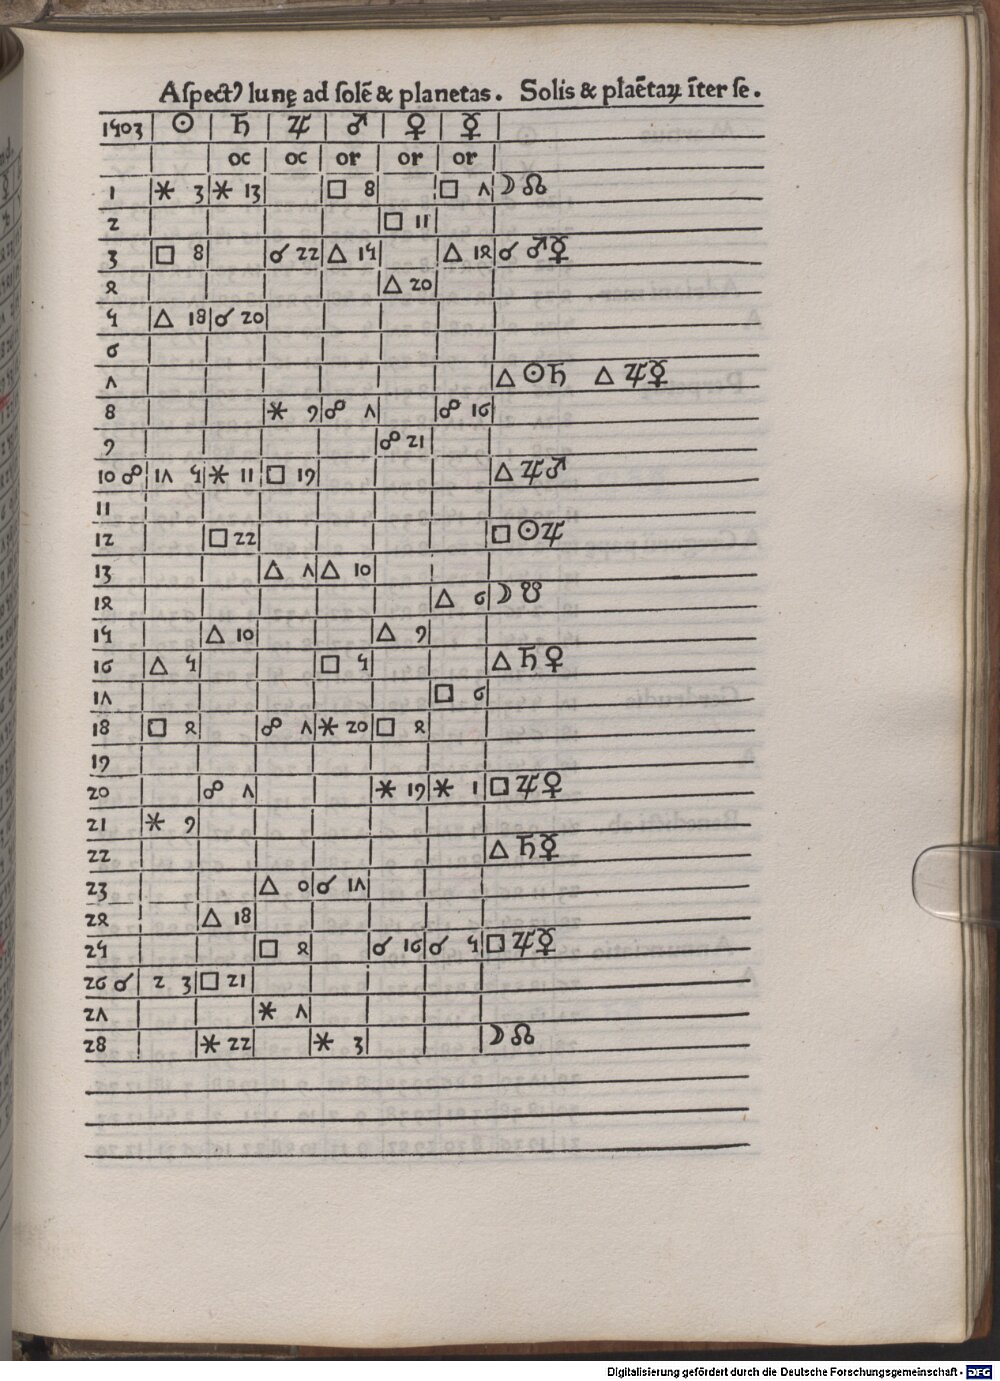 Aſpectꝰ lunę ad ſolē & planetas. Solis & plaētaꝝ īter ſe.
1503 ☉ ♄ ♃ ♂ ♀ ☿
oc oc or or or
1 ⚹ 3 ⚹ 13 □ 8 □ 7 ☽ ☊
2 □ 11
3 □ 8 ☌ 22 △ 15 △ 14 ☌ ♂ ☿
4 △ 20
5 △ 18 ☌ 20
6
7 △ ☉ ♄ △ ♃ ☿
8 ⚹ 9 ☍ 7 ☍ 16
9 ☍ 21
10 ☍ 17 5 ⚹ 11 □ 19 △ ♃ ♂
11
12 □ 22 □ ☉ ♃
13 △ 7 △ 10
14 △ 6 ☽ ☋
15 △ 10 △ 9
16 △ 5 □ 5 △ ♄ ♀
17 □ 6
18 □ 4 ☍ 7 ⚹ 20 □ 4
19
20 ☍ 7 ⚹ 19 ⚹ 1 □ ♃ ♀
21 ⚹ 9
22 △ ♄ ☿
23 △ 0 ☌ 17
24 △ 18
25 □ 4 ☌ 16 ☌ 5 □ ♃ ☿
26 ☌ 2 3 □ 21
27 ⚹ 7
28 ⚹ 22 ⚹ 3 ☽ ☊
Digitalisierung gefördert durch die Deutsche Forschungsgemeinschaft - DFG